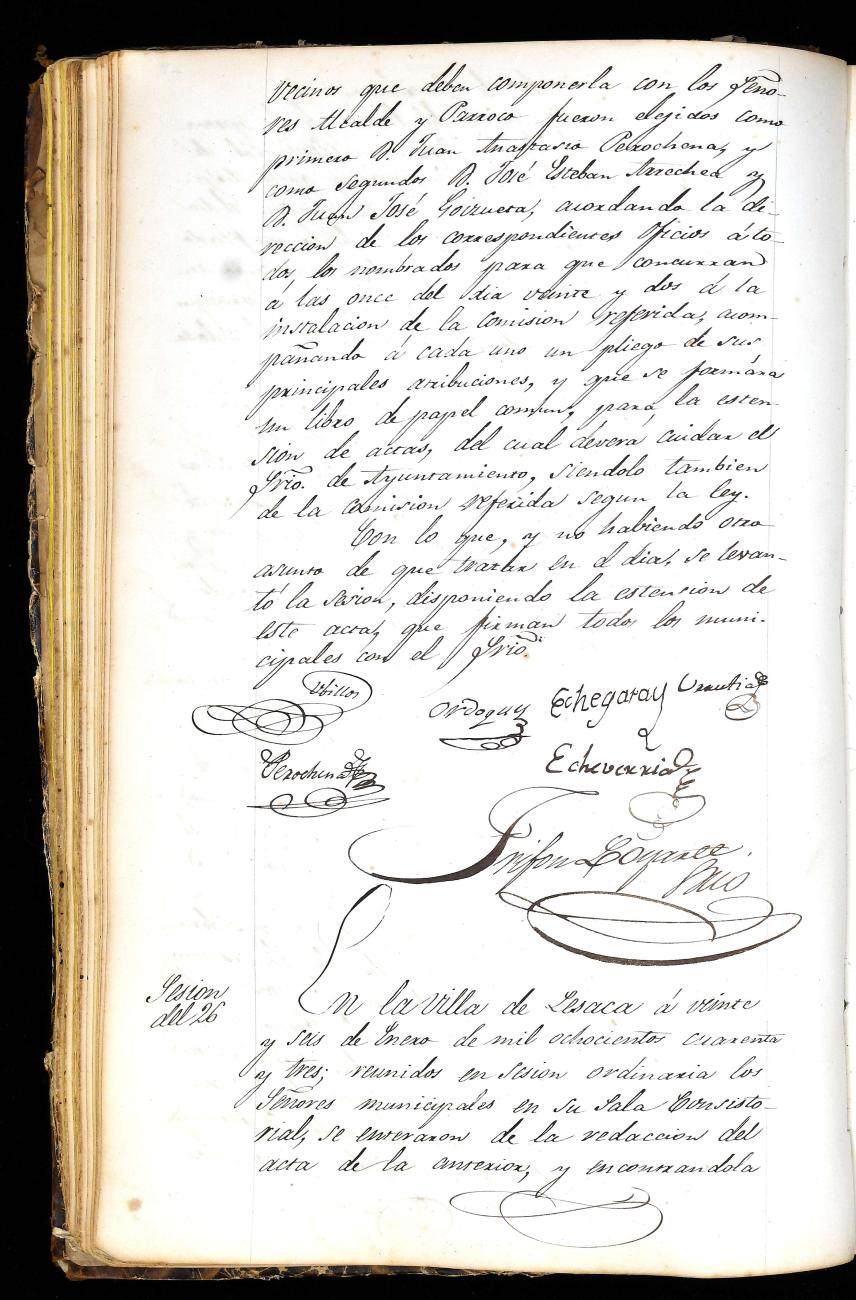 vecinos que deben componerla con los Seño-
res Alcalde y Parroco fueron elejidos como
primero D. Juan Anastasio Perochena, y
como segundos D. José Esteban Arrechea y
D. Juan José Goizueta, acordando la di-
reccion de los correspondientes Oficios á to-
dos los nombrados para que concurran
á las once del dia veinte y dos á la
instalacion de la Comision referida, acom-
pañando á cada uno un pliego de sus
principales atribuciones, y que se formára
un libro de papel comun, para la esten-
sion de actas, del cual deverá cuidar el
Srio. de Ayuntamiento, siendolo tambien
de la Comision referida segun la ley.
Con lo que, y no habiendo otro
asunto de que tratar en el dia, se levan-
tó la sesion, disponiendo la estencion de
este acta, que firman todos los muni-
cipales con el Srio.
Ubillos
Ordoquy
Echegaray
Urrutia
Perochena
Echeverria
Trifon
Srio
Sesion
del 26
En la Villa de Lesaca á veinte
y seis de Enero de mil ochocientos cuarenta
y tres; reunidos en sesion ordinaria los
Señores municipales en su Sala Consisto-
rial, se enteraron de la redaccion del
acta de la anterior, y encontrandola